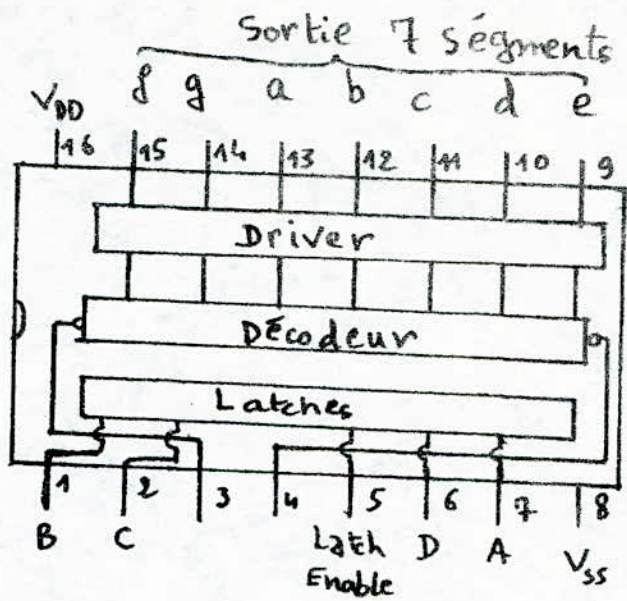 Sortie 7 ségments
f g a b c d e
VDD
16 15 14 13 12 11 10 9
Driver
Décodeur
Latches
1 2 3 4 5 6 7 8
B C Lath D A VSS
Enable